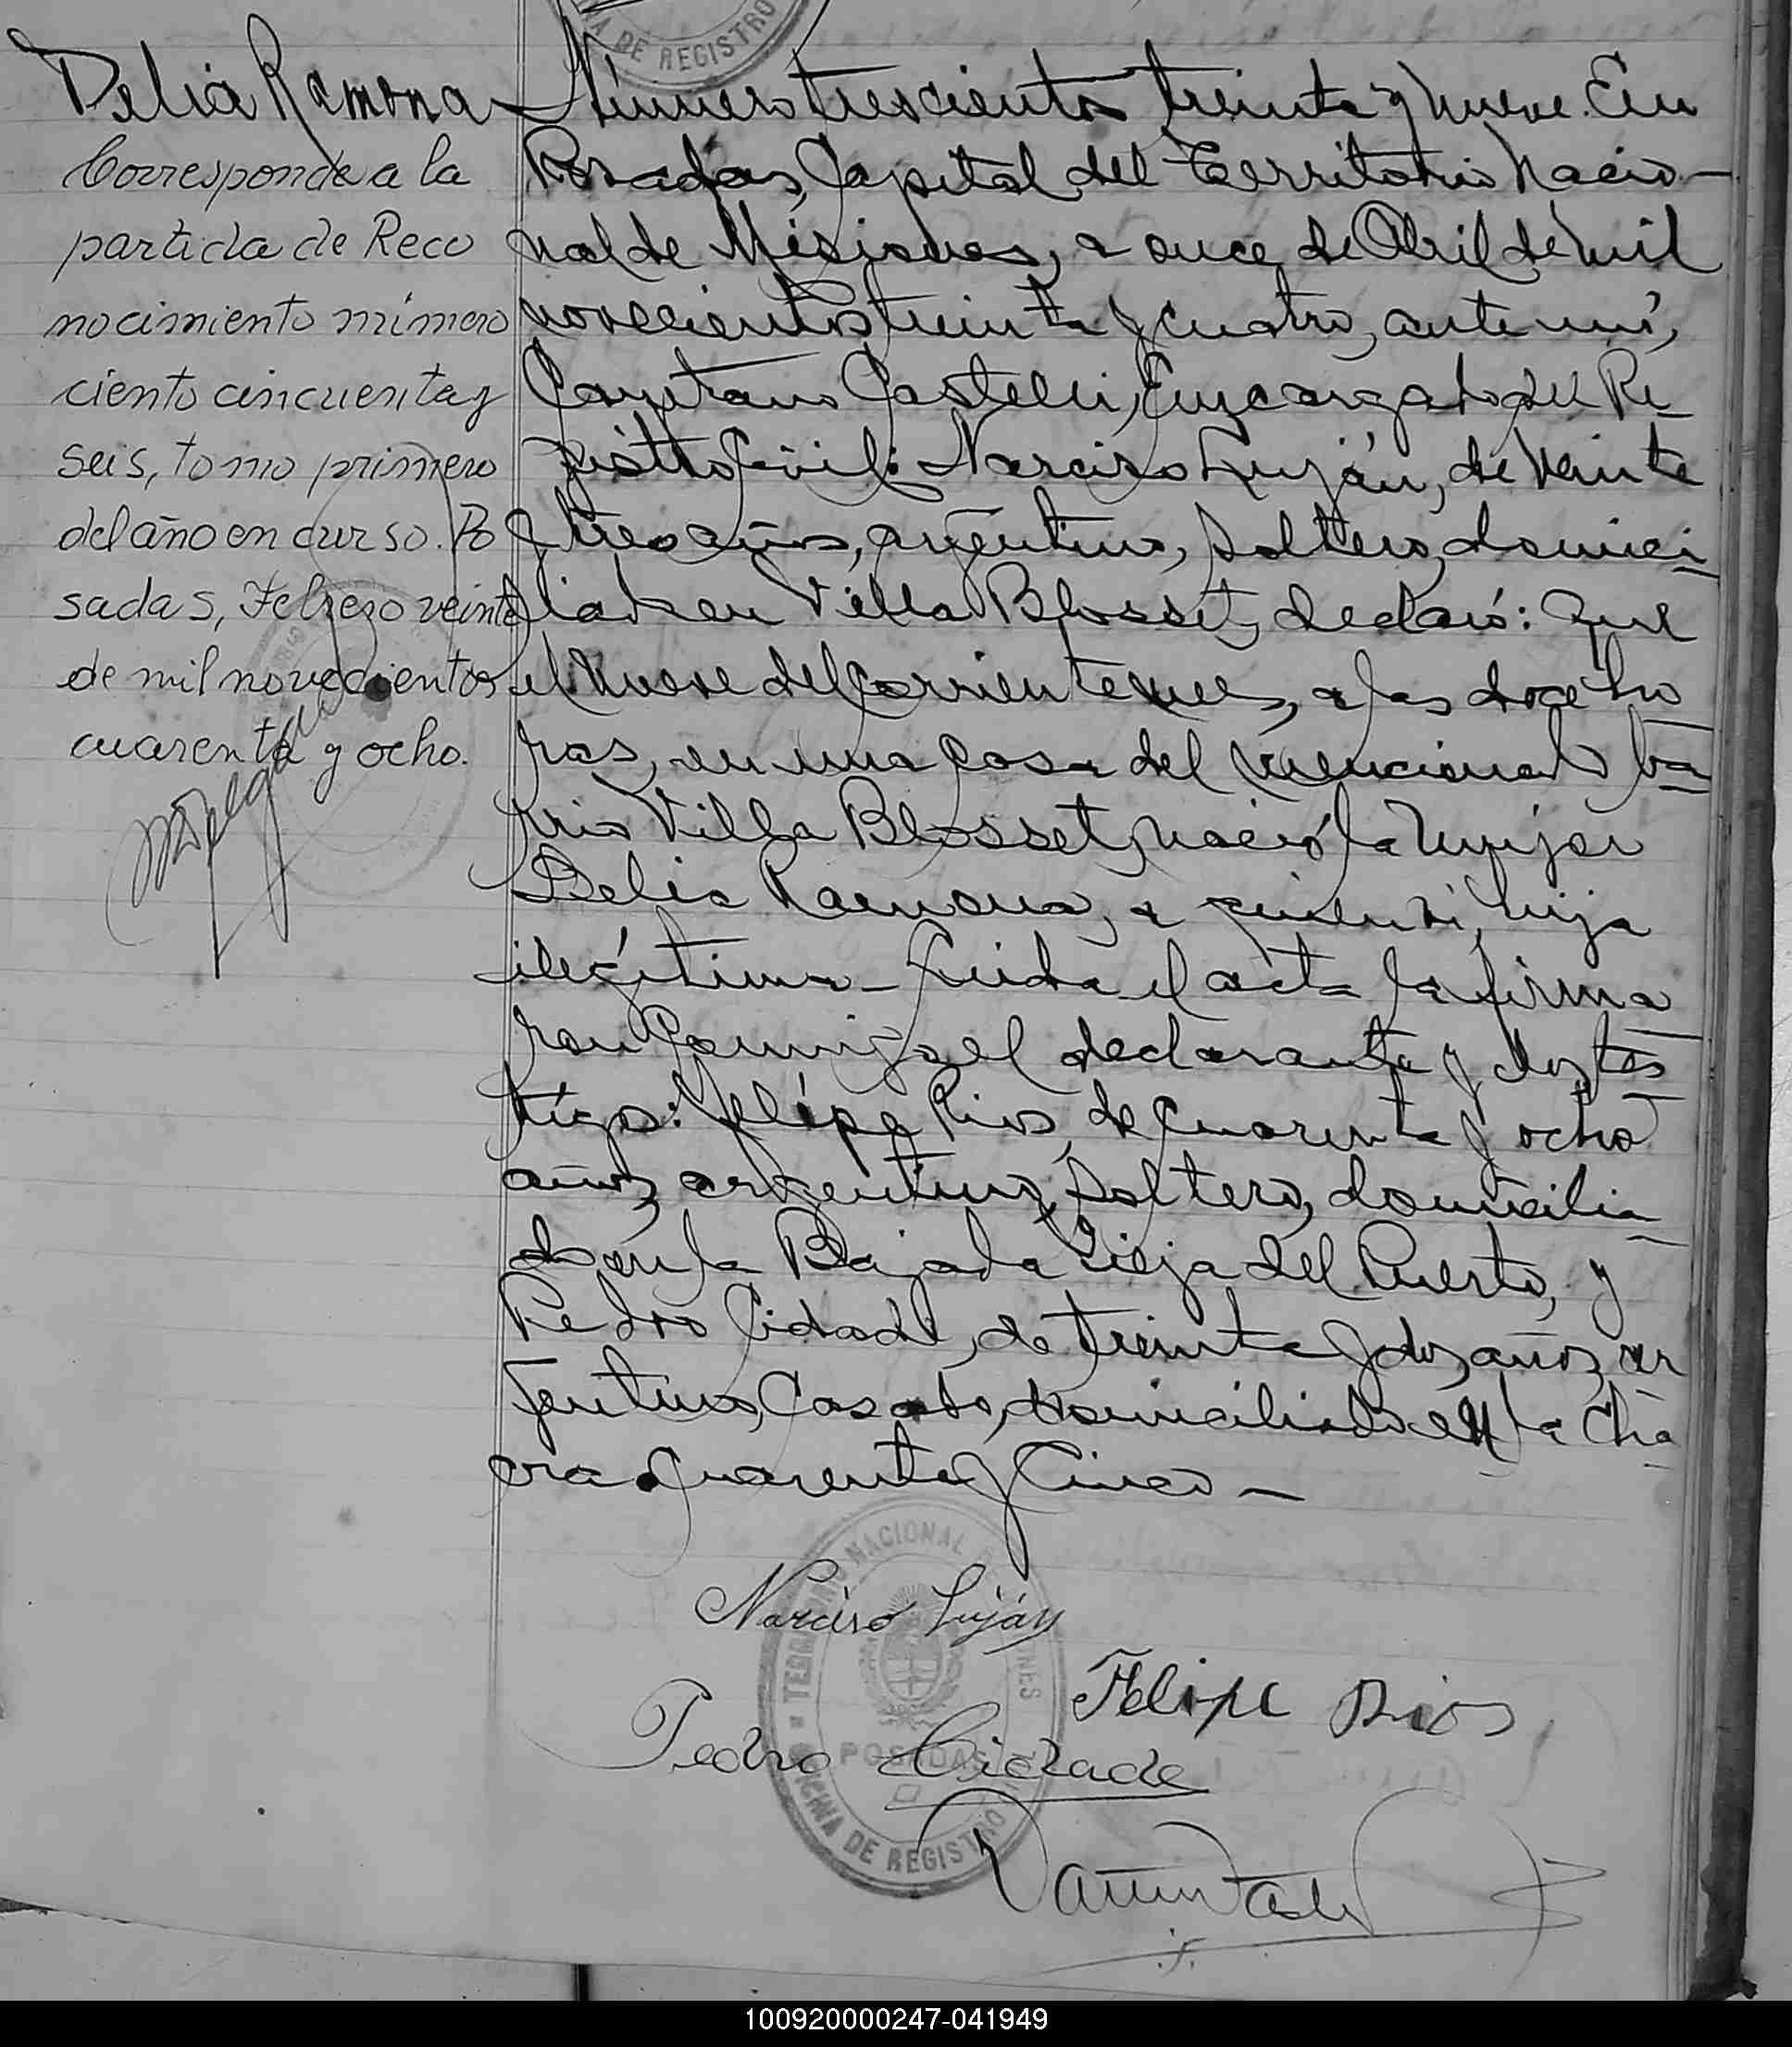 DE REGISTRO
Delia Ramona
Corresponde a la
partida de Reco
nocimiento número
ciento cincuenta y
seis, tomo primero
del año en curso. Po
sadas, Febrero veinte
de mil novecientos
cuarenta y ocho.
Número trescientos treinta y nueve. En
Posadas, Capital del Territorio Nacio-
nal de Misiones, a once de Abril de mil
novecientos treinta y cuatro, ante mí,
Cayetano Castelli, Encargado del Re
gistro Civil: Narciso Luján, de veinte
y tres años, argentino, soltero, domici
liado en Villa Blosset, declaró: Que
el nueve del corriente mes, a las doce ho
ras, en una casa del mencionado ba
rrio Villa Blosset, nació la mujer
Delia Ramona, a quien vi, hija
ilegítima - Leída el acta la firma
ron conmigo el declarante y dos tes
tigos: Felipe Rios, de cuarenta y ocho
años, argentino, soltero, domicilia
do en la Bajada Vieja del Puerto, y
Pedro Cidade, de treinta y dos años, ar
gentino, Casado, domiciliado en la Cha
cra cuarenta y cinco -
Narciso Luján
Felipe Rios
Pedro Cidade
TERRITORIO NACIONAL
POSADAS
OFICINA DE REGISTRO
100920000247-041949